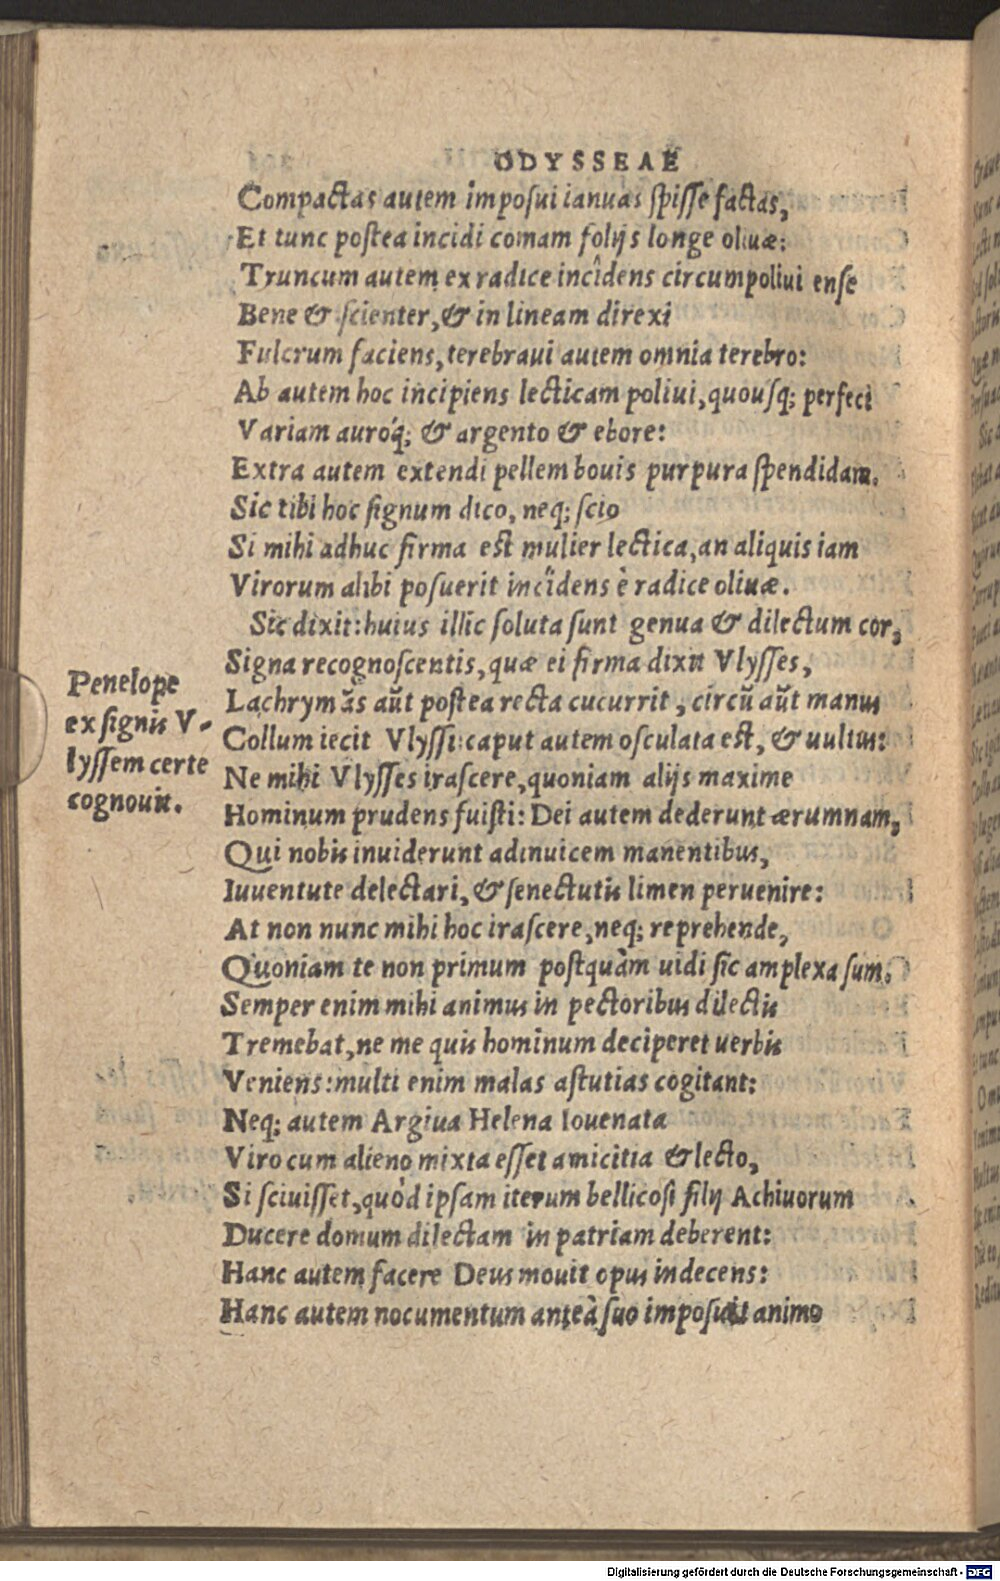 ODYSSEAE
Compactas autem imposui ianuas spisse factas,
Et tunc postea incidi comam folijs longe oliuæ:
Truncum autem ex radice incîdens circumpoliui ense
Bene & scienter, & in lineam direxi
Fulcrum faciens, terebraui autem omnia terebro:
Ab autem hoc incipiens lecticam poliui, quousq; perfeci
Variam auroq́; & argento & ebore:
Extra autem extendi pellem bouis purpura spendidam.
Sic tibi hoc signum dico, neq; scio
Si mihi adhuc firma est mulier lectica, an aliquis iam
Virorum alibi posuerit incîdens è radice oliuæ.
Sic dixit: huius illic soluta sunt genua & dilectum cor,
Signa recognoscentis, quæ ei firma dixit Vlysses,
Lachrymãs aũt postea recta cucurrit, circũ aũt manus
Collum iecit Vlyssi: caput autem osculata est, & uultus:
Ne mihi Vlysses irascere, quoniam alijs maxime
Hominum prudens fuisti: Dei autem dederunt ærumnam,
Qui nobis inuiderunt adinuicem manentibus,
Iuuentute delectari, & senectutis limen peruenire:
At non nunc mihi hoc irascere, neq; reprehende,
Quoniam te non primum postquàm uidi sic amplexa sum.
Semper enim mihi animus in pectoribus dilectis
Tremebat, ne me quis hominum deciperet uerbis
Veniens: multi enim malas astutias cogitant:
Neq; autem Argiua Helena Iouenata
Viro cum alieno mixta esset amicitia & lecto,
Si sciuisset, quòd ipsam iterum bellicosi filij Achiuorum
Ducere domum dilectam in patriam deberent:
Hanc autem facere Deus mouit opus indecens:
Hanc autem nocumentum anteà suo imposuit animo
Penelope
ex signis V-
lyssem certe
cognouit.
Digitalisierung gefördert durch die Deutsche Forschungsgemeinschaft - DFG